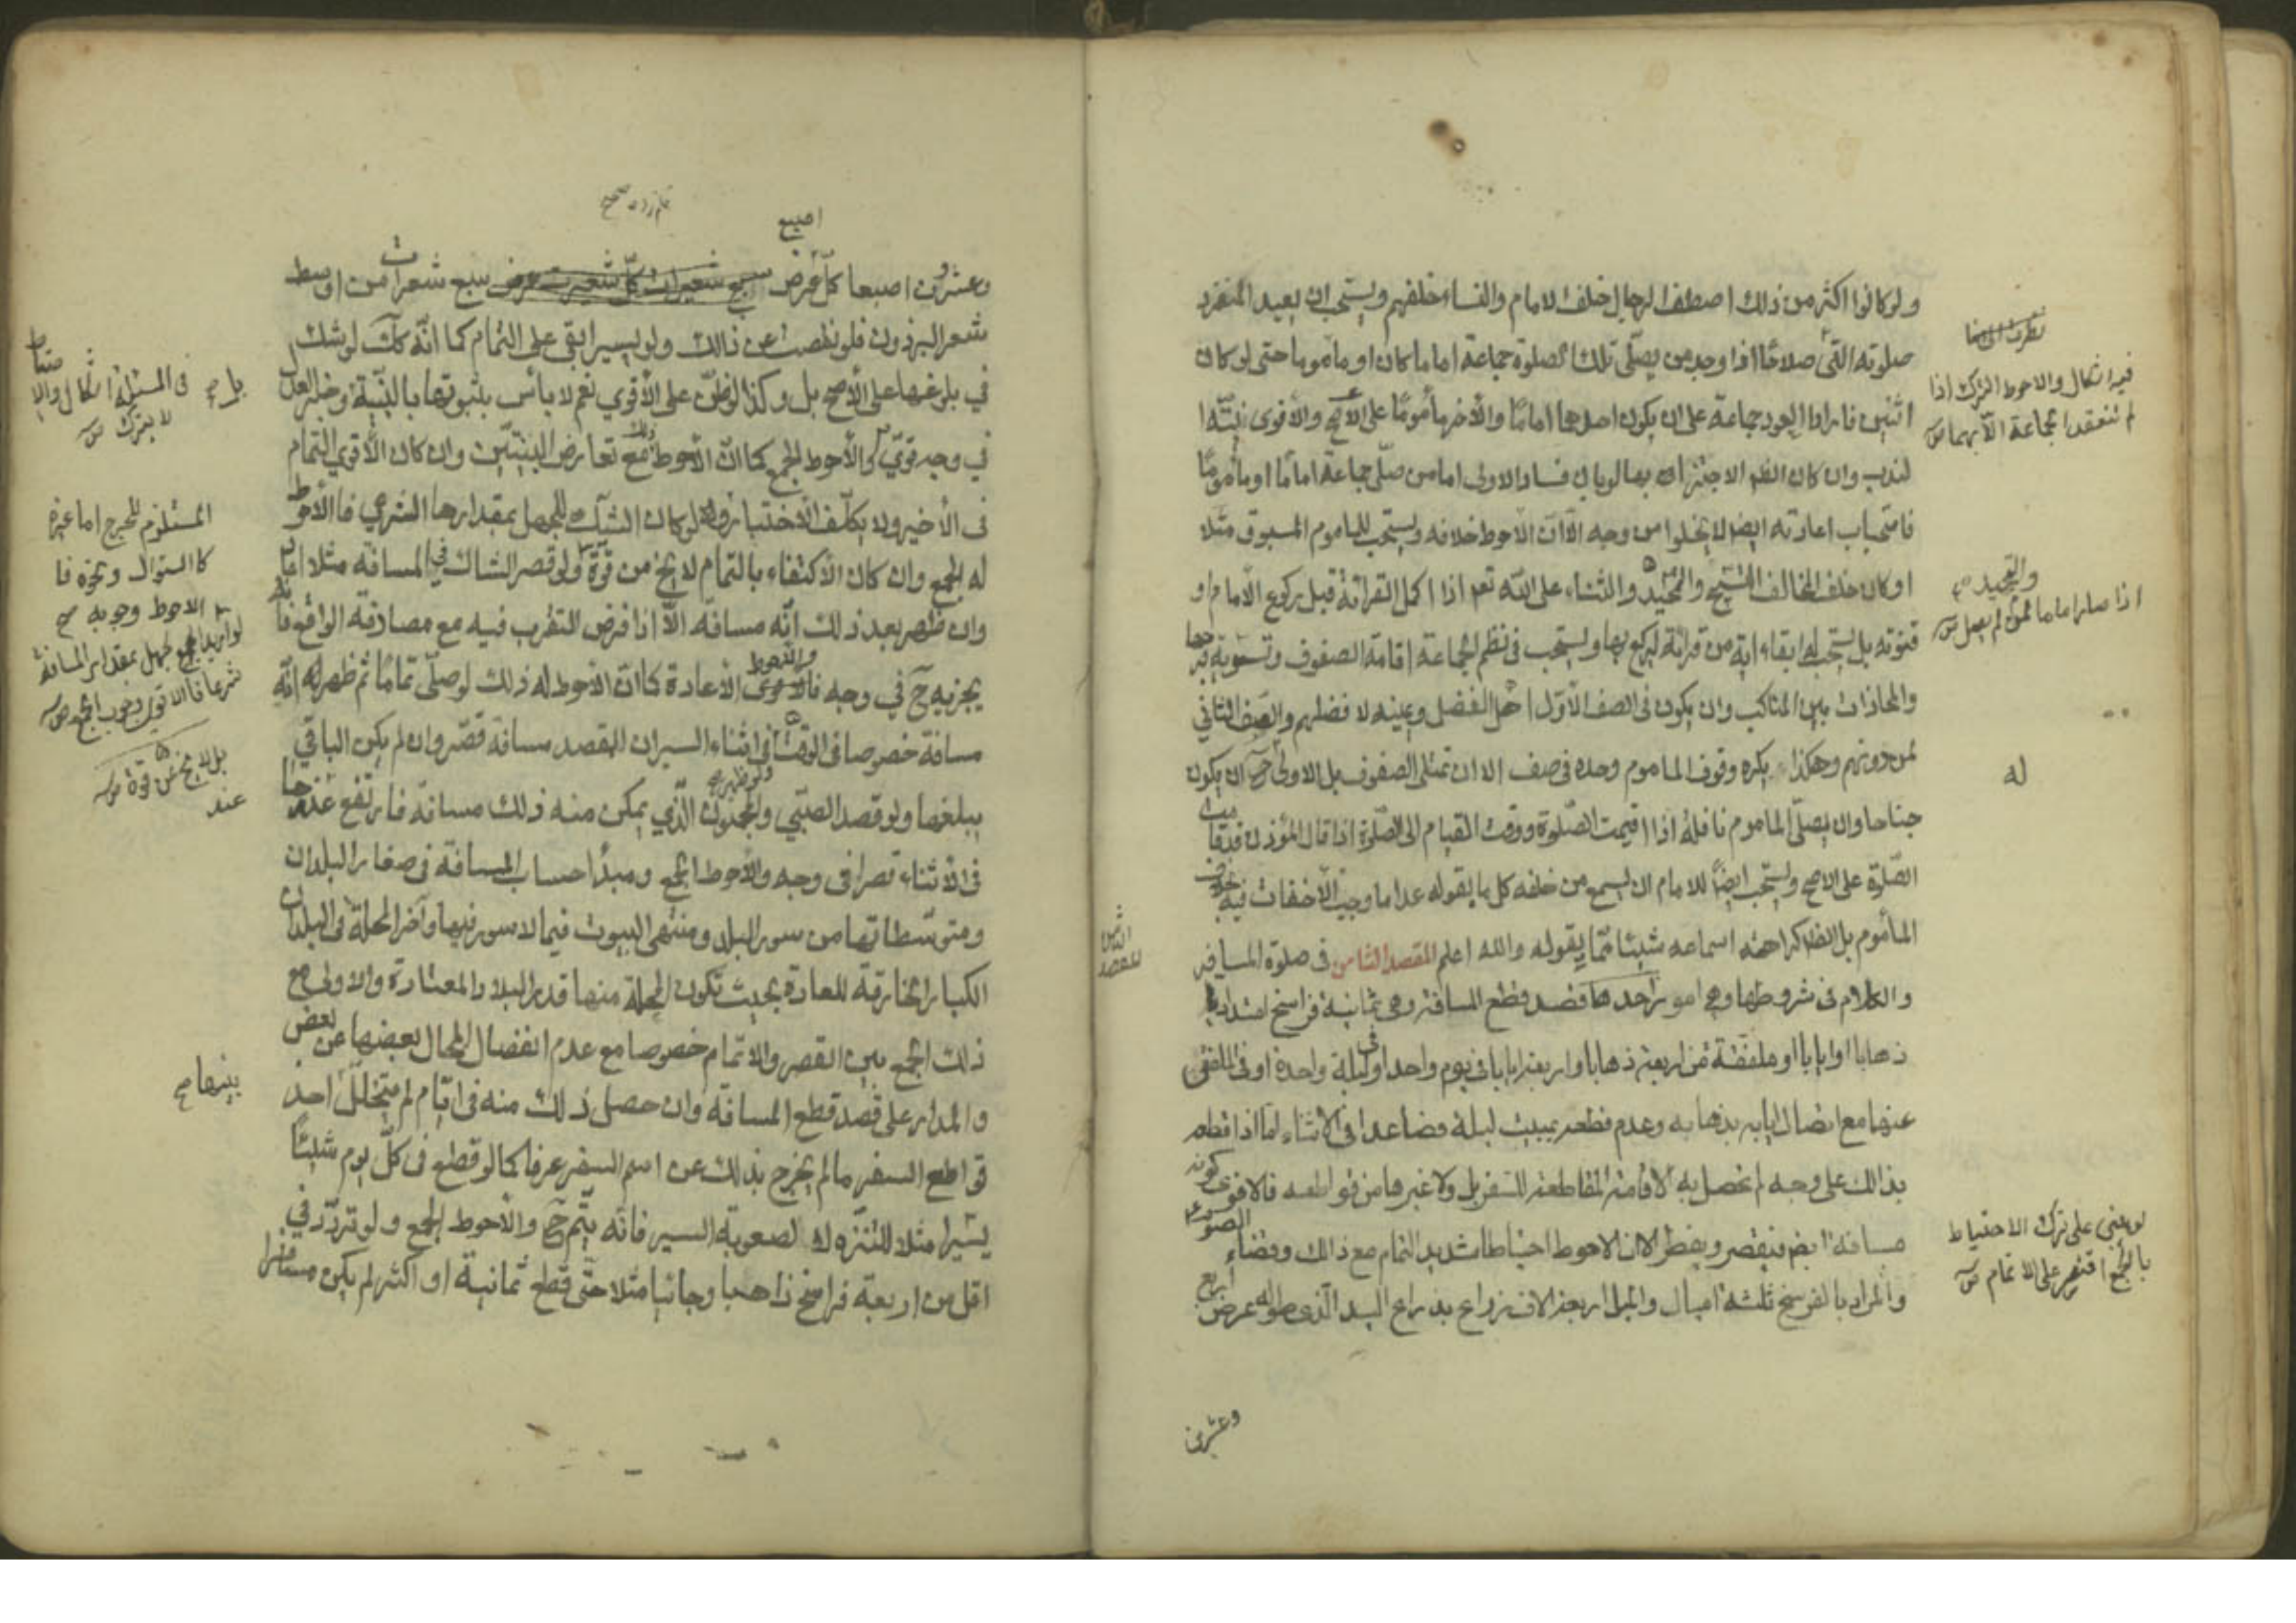 ولو كانوا اكثر من ذلك اصطف الرجال خلف الامام والنساء خلفهم ويستحب ان يعيد المنفرد
صلوته التي صلاها اذا وجد من يصلّي تلك الصلوة جماعة اماما كان او ماموما حتى لو كان
اثنين فارادا العود جماعة على ان يكون احدهما امامًا والآخر مأمومًا على الاصح والأقوى نيّة
لندب وان كان الاجتزاء بها لو بان فساد الاولى اما من صلّى جماعة امامًا او مأمومًا
فاستحباب اعادته ايضا لا يخلوا من وجه الّا انّ الأحوط خلافه ويستحب للماموم المسبوق مثلا
او كان خلف المخالف التسبيح والتمجيد والثناء على الله تعـ اذا اكمل القراءة قبل ركوع الامام او
قنوته بل يستحب له ابقاء اية من قراءة ليركع بها ويستحب في نظم الجماعة اقامة الصفوف وتسوية
والمحاذات بين المناكب وان يكون في الصف الأوّل اهل الفضل ويمينه لا فضلهم والصف الثاني
لمن دونهم وهكذا يكره وقوف الماموم وحده في صف الا ان تمتلى الصفوف بل الاولى ح ان يكون
جناحا وان يصلّي الماموم نافلة اذا اقيمت الصّلوة ووقت القيام الى الصّلوة اذا قال المؤذن قد قامت
الصّلوة على الاصح ويستحب ايضًا للامام ان يسمع من خلفه كل ما يقوله عدا ما وجب الاخفات فيه
المأموم بل الظ كراهته اسماعه شيئا ممّا يقوله والله اعلم المقصد الثامن في صلوة المسافر
والكلام في شروطها وهي امور احدها قصد قطع المسافة وهي ثمانية فراسخ امتدادية
ذهابا او ايابا او ملفقة من اربعة ذهابا واربعة ايابا في يوم واحد او في ليلة واحدة او في الملفق
عنهما مع اتصال ايابه بذهابه وعدم قطعه بمبيت ليلة فصاعدا في الاثناء امّا اذا قطعه
بذالك على وجه لم تحصل به الاقامة القاطعة للسفر بل ولا غيرها من قواطعه فالاقوى كونه
مسافة ايضا فيقصر ويفطر الا ان الاحوط احتياطا شديدا التمام مع ذالك وقضاء الصوم
والمراد بالفرسخ ثلثة اميال والميل اربعة الاف ذراع بذراع اليد الّذي طوله عرض اربع
وعشرين
فيه اشكال والاحوط الترك اذا
لم تنعقد الجماعة الّا بهما
والتحميد صح
له
لو بنى على ترك الاحتياط
بالجمع اقتصر على الاتمام
الثامن
المقصد
اصبع
وعشرون اصبعا كلّ عرض سبع شعيرات من اوسط
شعر البرذون فلو نقصت عن ذالك ولو يسيرا بقى على التمام كما انّه كك لو شك
في بلوغها على الأصح بل وكذا لو ظنّ على الأقوى نعم لا بأس بثبوتها بالبيّنة وخبر العدل
في وجه قويّ والأحوط الجمع كما انّ الأحوط ذلك مع تعارض البيّنتين وان كان الأقوى التمام
في الأخير ولا يكلّف الاختبار ولو كان الشك للجهل بمقدارها الشرعي فالأحوط
له الجمع وان كان الأكتفاء بالتمام لا يخ من قوّة ولو قصر الشاك في المسافة مثلا اعاد
وان ظهر بعد ذلك انّه مسافة الّا اذا فرض التقرب فيه مع مصادفة الواقع
يجزيه ح في وجه والأحوط الأعادة كما انّ الأحوط له ذلك لو صلّى تمامًا ثم ظهر له انّه
مسافة خصوصا في الوقت ولو ظهر في اثناء السير ان المقصد مسافة قصّر وان لم يكن الباقي
يبلغها ولو قصد الصبّي والمجنون الّذي يمكن منه ذلك مسافة فارتفع عذرهما
في الأثناء قصرا في وجه والأحوط الجمع ومبدأ حساب المسافة في صغار البلدان
ومتوسّطاتها من سور البلد ومنتهى البيوت فيما لا سور فيها وآخر المحلة في البلدان
الكبار الخارقة للعادة بحيث تكون المحلة منها قدر البلاد المعتادة والاولى مع
ذلك الجمع بين القصر والاتمام خصوصا مع عدم انفصال المحال بعضها عن بعض
والمدار على قصد قطع المسافة وان حصل ذلك منه في ايّام لم يتخلل احد
قواطع السفر ما لم يخرج بذلك عن اسم السفر عرفا كما لو قطع في كلّ يوم شيئًا
يسيرا مثلا للتنزه لا لصعوبة السير فانّه يتّم ح والأحوط الجمع ولو تردّد في
اقل من اربعة فراسخ ذاهبا وجائيا مثلا حتّى قطع ثمانية او اكثر لم يكن مسافرا
بل صح
في المسئلة اشكال
لا يترك
المستلزم للحرج اما غيره
كالسؤال ونحوه فا
الاحوط وجوبه صح
شرعا فالاقوى وجوب الجمع
بل لا يخ من قوة
عند
بينها صح